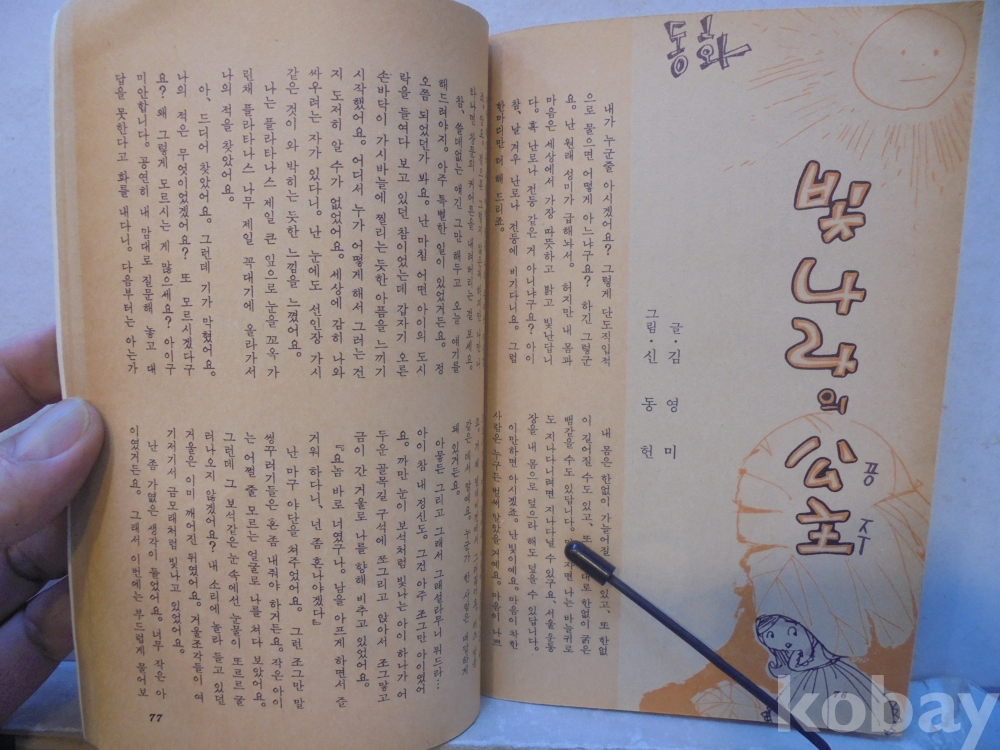 동화
빛나라의 公主
공주
글·김영미
그림·신동헌
내가 누군줄 아시겠어요? 그렇게 단도직입적
으로 물으면 어떻게 아느냐구요? 하긴 그렇군
요. 난 원래 성미가 급해놔서. 허지만 내 몸과
마음은 세상에서 가장 따뜻하고 밝고 빛난답니
다. 혹 난로나 전등 같은 거 아니냐구요? 아이
참, 날 겨우 난로나 전등에 비기다니요. 그럼
한마디만 더 해 드리죠.
내 몸은 한없이 가늘어질 수도 있고, 또 한없
이 길어질 수도 있고, 또 한없이 굵은
뱀같을 수도 있답니다. 나는 바늘귀로
도 지나다니려면 지나다닐 수 있구요, 서울 운동
장을 내 몸으로 덮으라 해도 덮을 수 있답니다.
이만하면 아시겠죠. 난 빛이예요. 마음이 착한
사람은 누구든 벌써 알았을 거예요. 마음이 나쁘
참, 쓸데없는 얘긴 그만 해두고 오늘 얘기를
해드려야지. 아주 특별한 일이 있었거든요. 정
오쯤 되었던가 봐요. 난 마침 어떤 아이의 도시
락을 들여다 보고 있던 참이었는데 갑자기 오른
손바닥이 가시바늘에 찔리는 듯한 아픔을 느끼기
시작했어요. 어디서 누가 어떻게 해서 그러는건
지 도저히 알 수가 없었어요. 세상에 감히 나와
싸우려는 자가 있다니. 난 눈에도 선인장 가시
같은 것이 와 박히는 듯한 느낌을 느꼈어요.
나는 플라타나스 제일 큰 잎으로 눈을 꼬옥 가
린채 플라타나스 나무 제일 꼭대기에 올라가서
나의 적을 찾았어요.
아, 드디어 찾았어요. 그런데 기가 막혔어요.
나의 적은 무엇이었겠어요? 또 모르시겠다구
요? 왜 그렇게 모르시는 게 많으세요? 아이구
미안합니다. 공연히 내 맘대로 질문해 놓고 대
답을 못한다고 화를 내다니. 다음부터는 아는가
돼 있거든요.
아뭏든 그리고 그래서 그래설라무니 뭐드라…
아이 참 내 정신도. 그건 아주 조그만 아이였어
요. 까만 눈이 보석처럼 빛나는 아이 하나가 어
두운 골목길 구석에 쪼그리고 앉아서 조그맣고
금이 간 거울로 나를 향해 비추고 있었어요.
『요놈 바로 너였구나. 남을 아프게 하면서 즐
거워 하다니, 넌 좀 혼나야겠다』
난 마구 야단을 쳐주었어요. 그런 조그만 말
썽꾸러기들은 혼좀 내줘야 하거든요. 작은 아이
는 어쩔 줄 모르는 얼굴로 나를 쳐다 보았어요.
그런데 그 보석같은 눈 속에서 눈물이 또르르굴
러나오지 않겠어요? 내 소리에 놀라 들고 있던
거울은 이미 깨어진 뒤였어요. 거울조각들이 여
기저기서 금모래처럼 빛나고 있었어요.
난 좀 가엾은 생각이 들었어요. 너무 작은 아
이였거든요. 그래서 이번에는 부드럽게 물어보
77
kobay